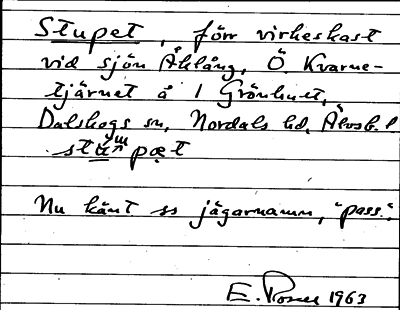 Stupet, förr virkeskast
vid sjön Åklång, Ö. Kvarne-
tjärnet å 1 Grönhult,
Dalskogs sn, Nordals hd, Älvsb. l
stu̲pæt
Nu känt ss jägarnamn, "pass".
E. 1963